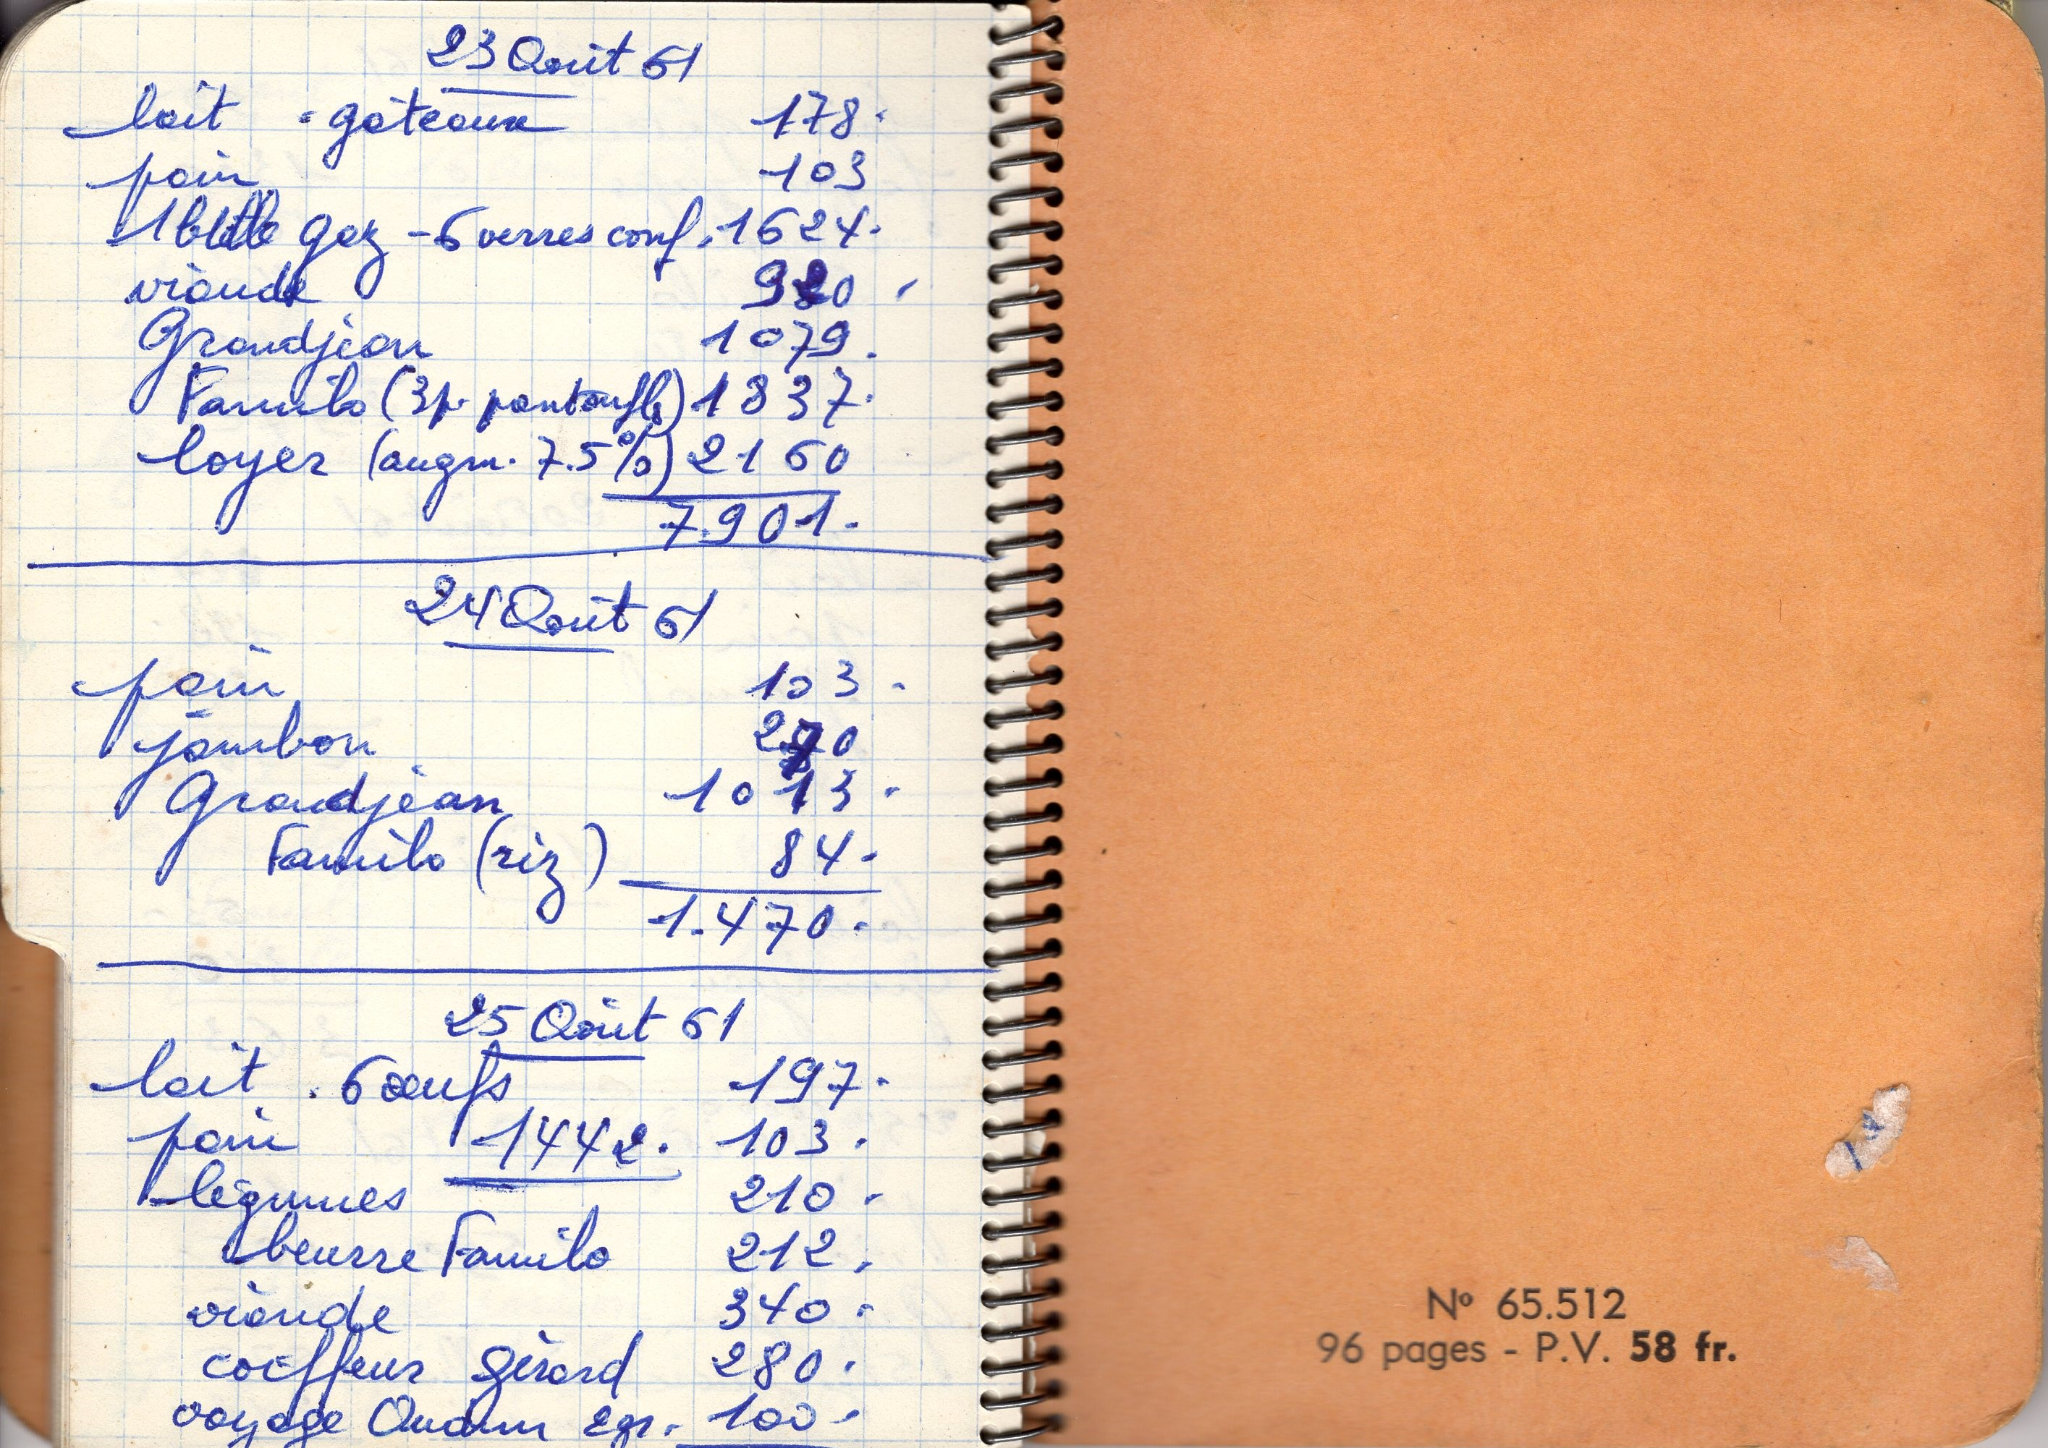 23 Août 61
lait - gâteaux 178.
pain 103
1 btlle gaz - 6 verres conf. 1624.
viande 920
Grandjean 1079.
Familo (3p. pantoufls) 1837.
loyer (augm. 7.5%) 2160
7.901.
24 Août 61
pain 103.
jambon 270
Grandjean 1013.
Familo (riz) 84.
1.470.
25 Août 61
lait . 6 œufs 197.
pain 1442. 103.
légumes 210.
beurre Familo 212.
viande 340.
coiffeur Gérard 280.
voyage 100.
N° 65.512
96 pages - P.V. 58 fr.